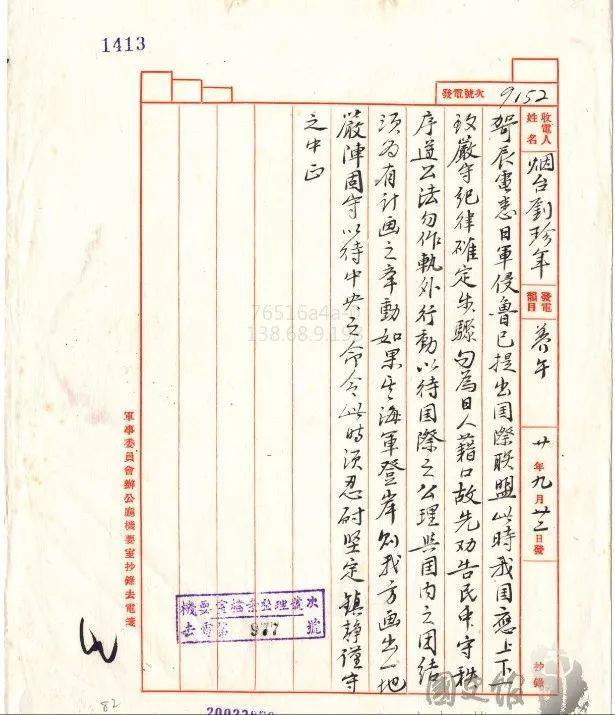 1413
發電號次 9152
收電人姓名 烟台劉珍年 發電韻目 養午 廿年九月廿二日發 抄錄
哿辰電悉日軍侵魯已提出国際联盟此時我国應上下一
致嚴守紀律確定步驟勿為日人藉口故先劝告民众守秩
序遵公法勿作軌外行動以待国際之公理與国内之团结
須为有計画之举動如果其海軍登岸則我方画出一地
嚴陣固守以待中央之命令此時须忍耐坚定鎮静謹守
之中正
機要室檔案整理號次
去電第 977 號
軍事委員會辦公廳機要室抄錄去電箋
82
76516a4a
138.68.9.19